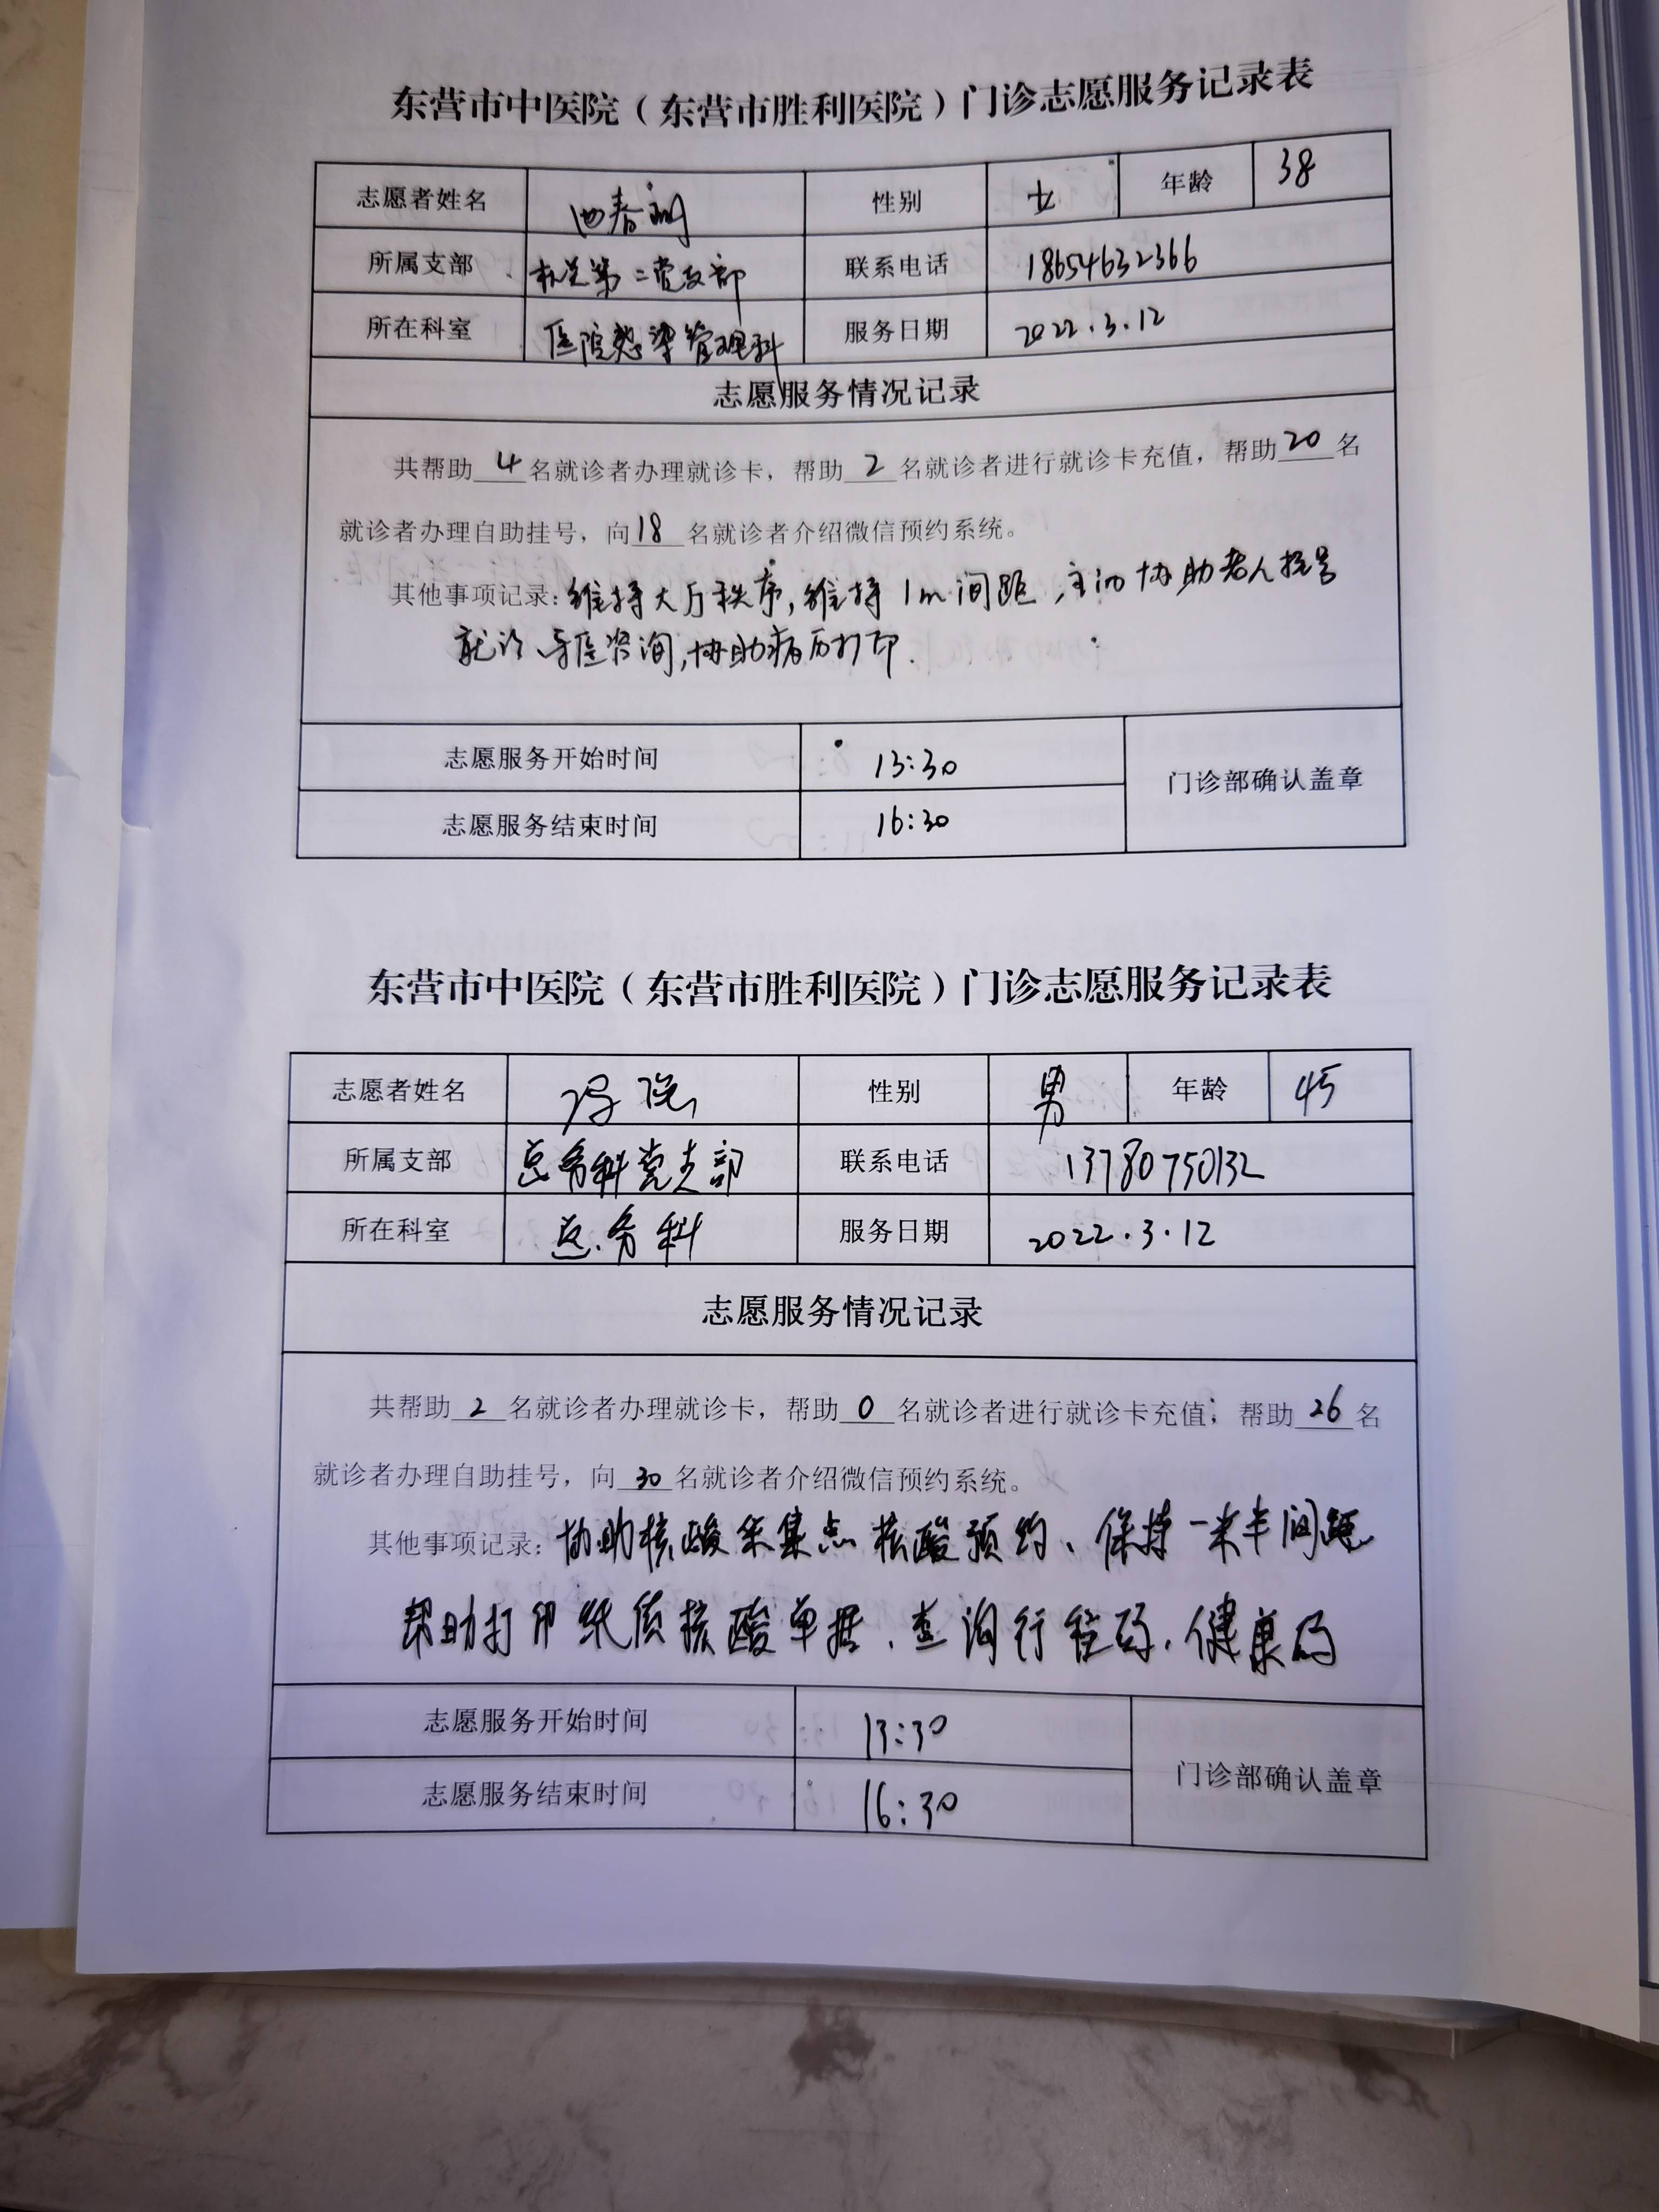 东营市中医院（东营市胜利医院）门诊志愿服务记录表
志愿者姓名 性别 女 年龄 38
所属支部 机关第二党支部 联系电话 18654632366
所在科室 医院感染管理科 服务日期 2022.3.12
志愿服务情况记录
共帮助4名就诊者办理就诊卡，帮助2名就诊者进行就诊卡充值，帮助20名
就诊者办理自助挂号，向18名就诊者介绍微信预约系统。
其他事项记录：维持大厅秩序，维持1m间距，主动协助老人挂号
就诊、导医咨询，协助病历打印.
志愿服务开始时间 13:30
门诊部确认盖章
志愿服务结束时间 16:30
东营市中医院（东营市胜利医院）门诊志愿服务记录表
志愿者姓名 性别 男 年龄 45
所属支部 总务科党支部 联系电话 13780750132
所在科室 总务科 服务日期 2022.3.12
志愿服务情况记录
共帮助2名就诊者办理就诊卡，帮助0名就诊者进行就诊卡充值，帮助26名
就诊者办理自助挂号，向30名就诊者介绍微信预约系统。
其他事项记录：协助核酸采集点核酸预约、保持一米半间距
帮助打印纸质核酸单据、查询行程码、健康码
志愿服务开始时间 13:30
门诊部确认盖章
志愿服务结束时间 16:30